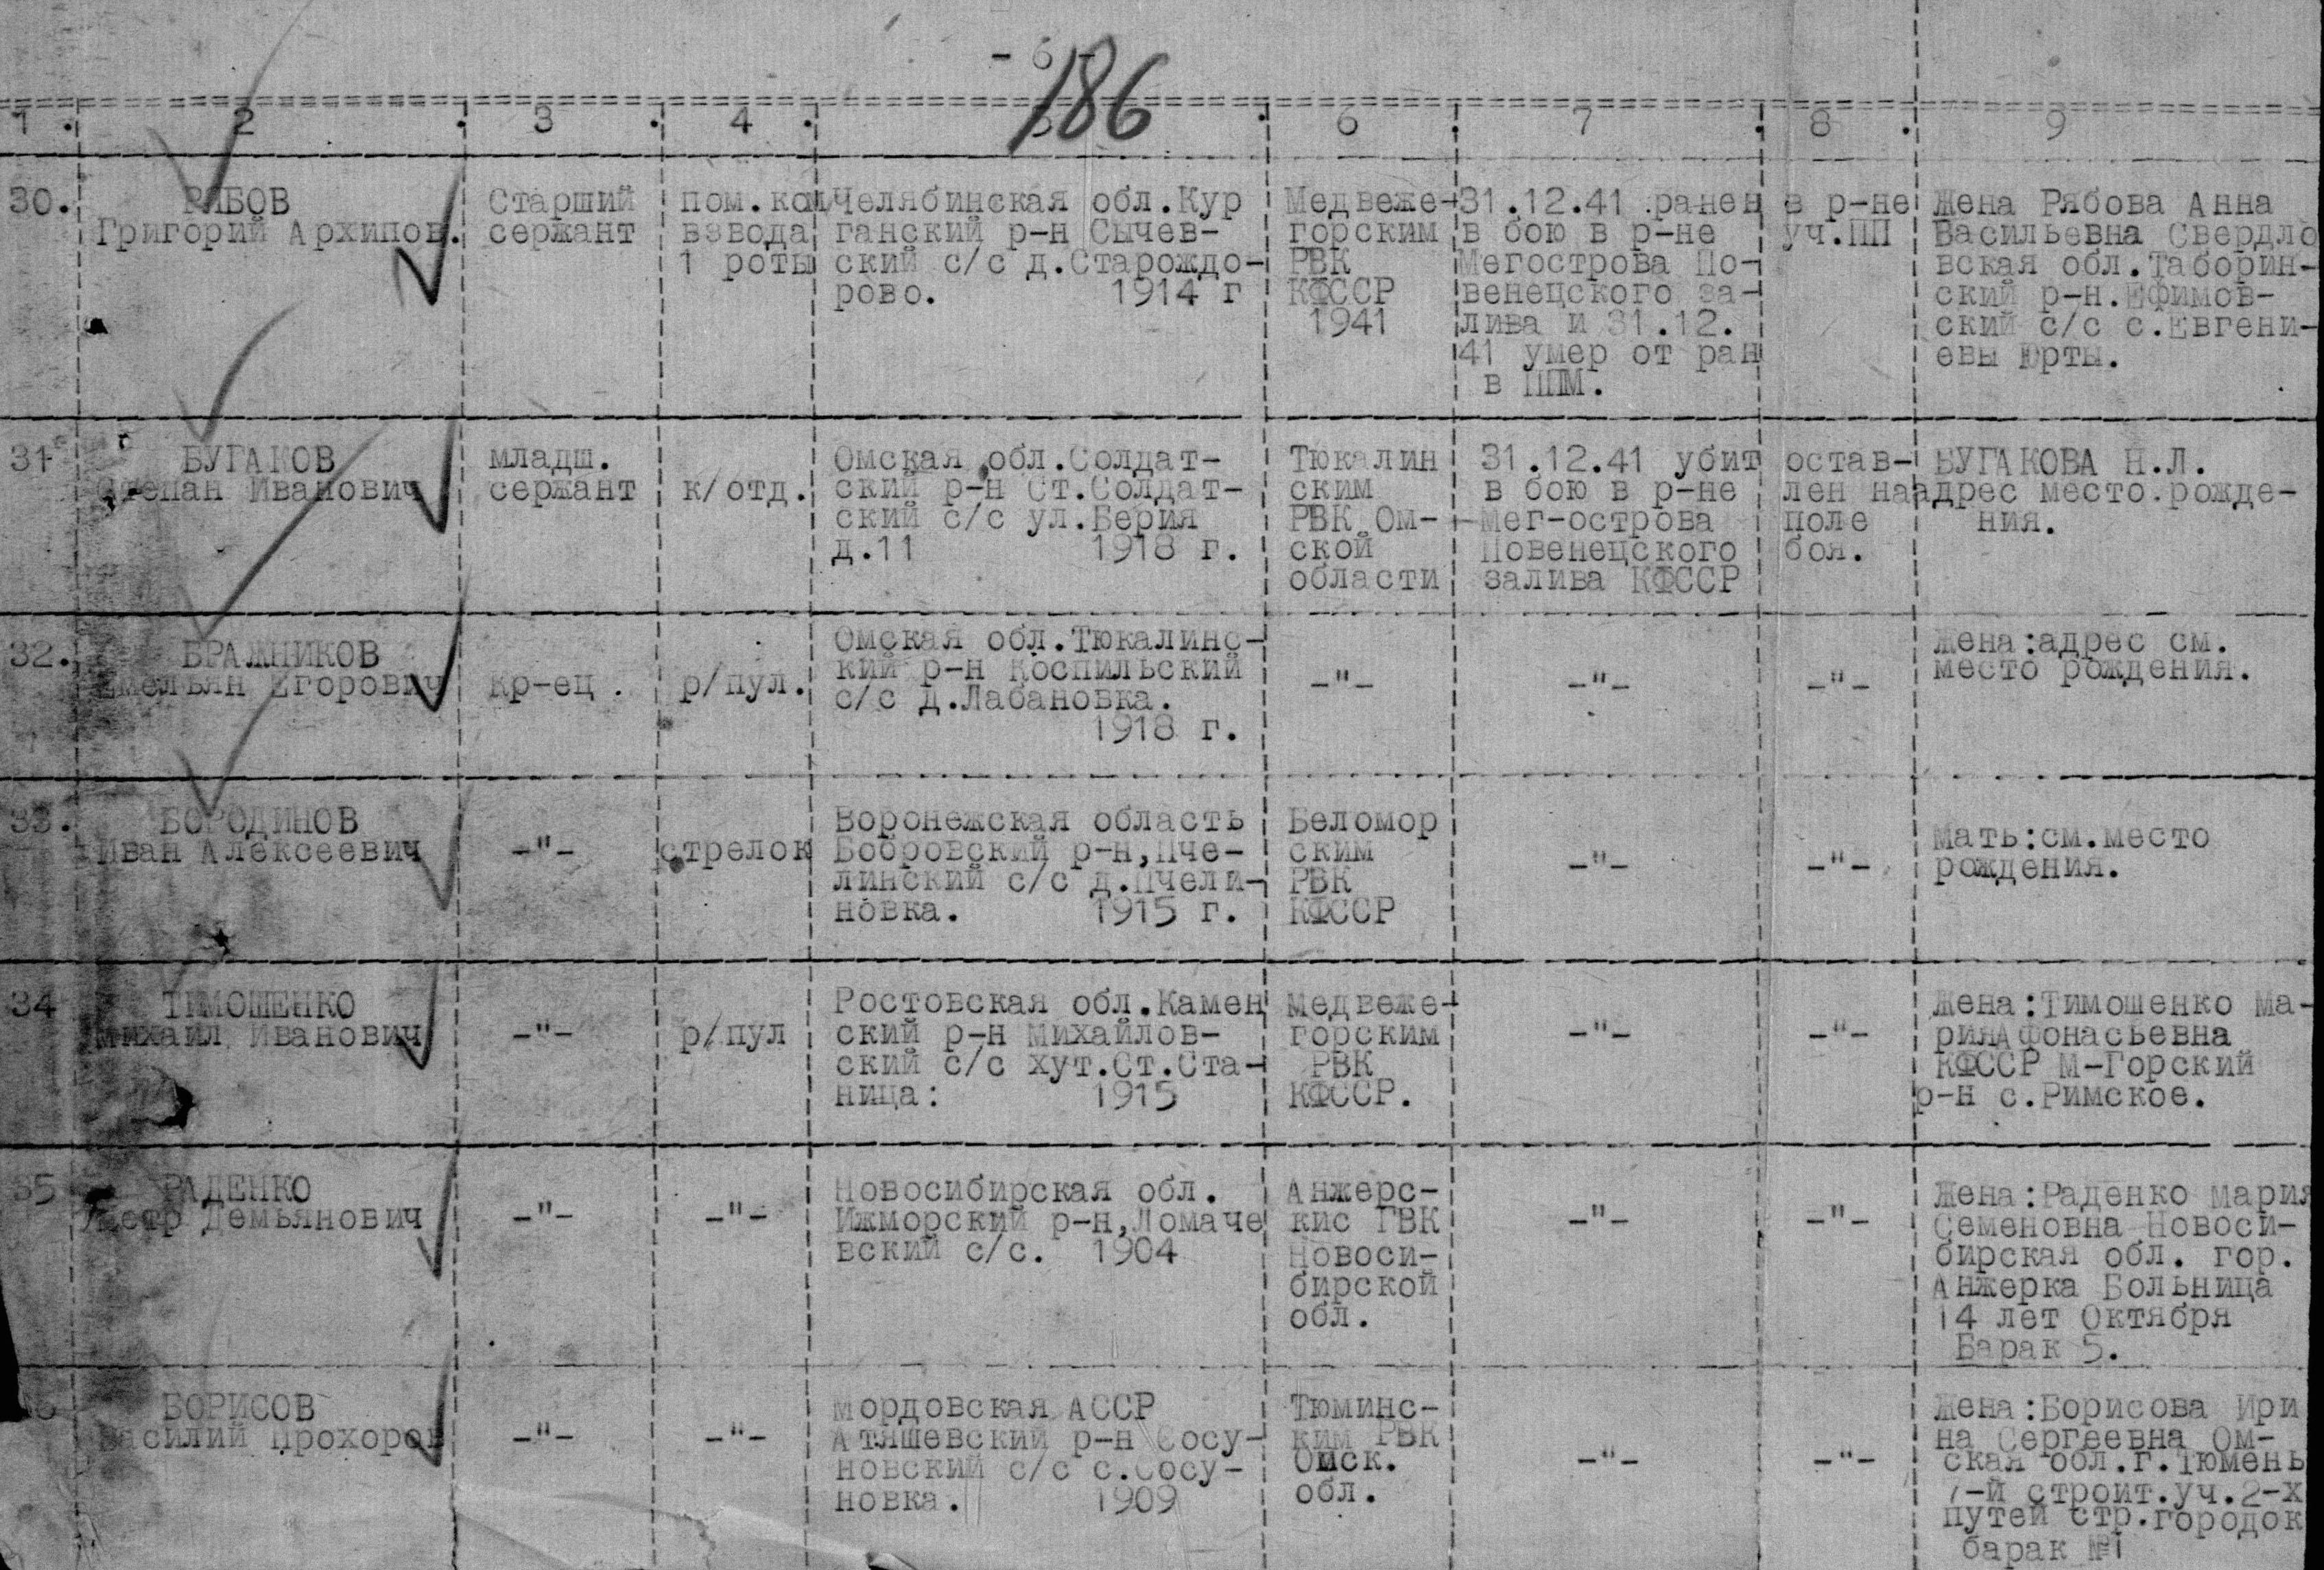 - 6 -
186
1 . 2 . 3 . 4 . 5 . 6 . 7 . 8 . 9
30.
РЯБОВ
Григорий Архипов.
Старший
сержант
пом.ком
взвода
1 роты
Челябинская обл.Кур
ганский р-н Сычев-
ский с/с д.Старождо-
рово. 1914 г
Медвеже-
горским
РВК
КФССР
1941
31.12.41 ранен
в бою в р-не
Мегострова По-
венецского за-
лива и 31.12.
41 умер от ран
в ППМ.
в р-не
уч.ПП
Жена Рябова Анна
Васильевна Свердло
вская обл.Таборин-
ский р-н.Ефимов-
ский с/с с.Евгени-
евы Юрты.
31
БУГАКОВ
Степан Иванович
младш.
сержант
к/отд.
Омская обл.Солдат-
ский р-н Ст.Солдат-
ский с/с ул.Берия
д.11 1918 г.
Тюкалин
ским
РВК Ом-
ской
области
31.12.41 убит
в бою в р-не
Мег-острова
Повенецского
залива КФССР
остав-
лен на
поле
боя.
БУГАКОВА Н.Л.
адрес место.рожде-
ния.
32.
БРАЖНИКОВ
Емельян Егорович
Кр-ец .
р/пул.
Омская обл.Тюкалинс-
кий р-н Коспильский
с/с д.Лабановка.
1918 г.
-"-
-"-
-"-
Жена:адрес см.
место рождения.
33.
БОРОДИНОВ
Иван Алексеевич
-"-
стрелок
Воронежская область
Бобровский р-н,Пче-
линский с/с д.Пчели-
новка. 1915 г.
Беломор
ским
РВК
КФССР
-"-
-"-
Мать:см.место
рождения.
34
ТИМОШЕНКО
Михаил Иванович
-"-
р/пул
Ростовская обл.Камен
ский р-н Михайлов-
ский с/с хут.Ст.Ста-
ница: 1915
Медвеже-
горским
РВК
КФССР.
-"-
-"-
Жена:Тимошенко Ма-
рияАфонасьевна
КФССР М-Горский
р-н с.Римское.
35
РАДЕНКО
Петр Демьянович
-"-
-"-
Новосибирская обл.
Ижморский р-н,Ломаче
вский с/с. 1904
Анжерс-
кис ГВК
Новоси-
бирской
обл.
-"-
-"-
Жена:Раденко Мария
Семеновна Новоси-
бирская обл. гор.
Анжерка Больница
14 лет Октября
Барак 5.
БОРИСОВ
Василий Прохоров
-"-
-"-
Мордовская АССР
Атяшевский р-н Сосу-
новский с/с с.Сосу-
новка. 1909
Тюминс-
ким РВК
Омск.
обл.
-"-
-"-
Жена:Борисова Ири
на Сергеевна Ом-
ская обл.г.Тюмень
7-й строит.уч.2-х
путей стр.городок
барак №1